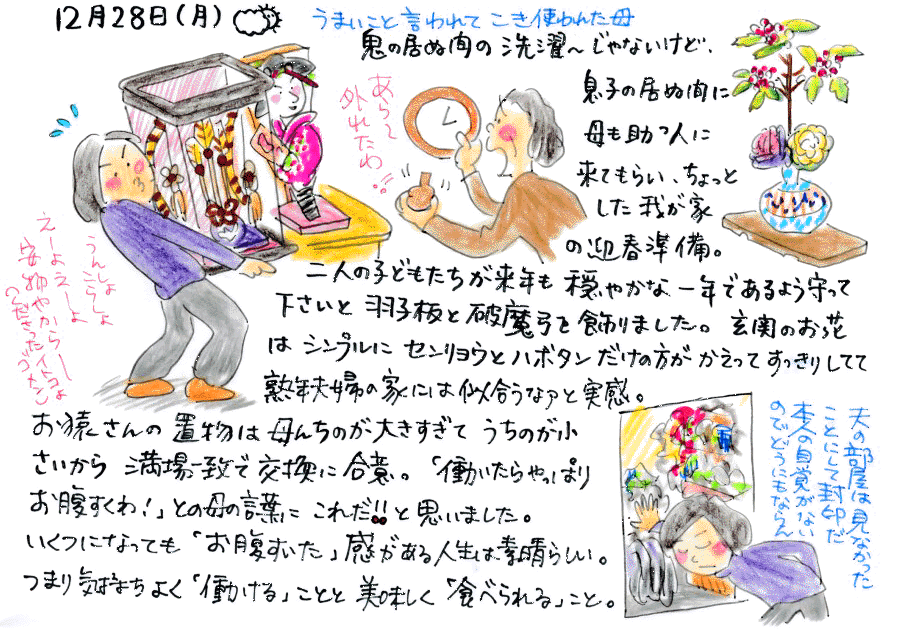 12月28日(月)
うまいこと言われて こき使われた母
鬼の居ぬ間の洗濯〜じゃないけど、
息子の居ぬ間に
母も助っ人に
来てもらい、ちょっと
した我が家
の迎春準備。
あら〜
外れたわ!!
うんしょ
こらしょ
えーよえーよ
安物やから〜
二人の子どもたちが来年も 穏やかな一年であるよう守って
下さいと 羽子板と破魔弓を飾りました。玄関のお花
は シンプルに センリョウとハボタンだけの方が かえってすっきりしてて
熟年夫婦の家には似合うなァと実感。
お猿さんの置物は母んちのが大きすぎて うちのが小
さいから 満場一致で交換に合意。「働いたらやっぱり
お腹すくわ!」との母の言葉に これだ!!と思いました。
いくつになっても「お腹すいた」感がある人生は素晴らしい。
つまり気持ちよく「働ける」ことと 美味しく「食べられる」こと。
夫の部屋は見なかった
ことにして封印だ
本人の自覚がない
のでどうにもならん